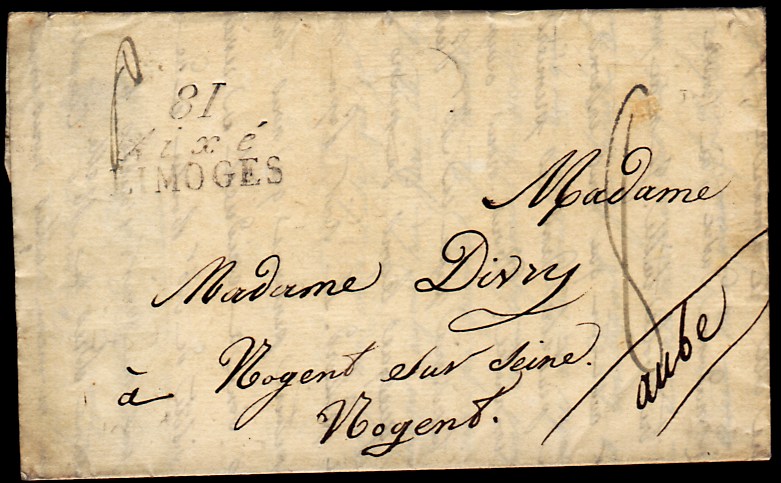 81
Aixé
LIMOGES
8
Madame
Madame Divry
à Nogent sur Seine.
Nogent.
aube